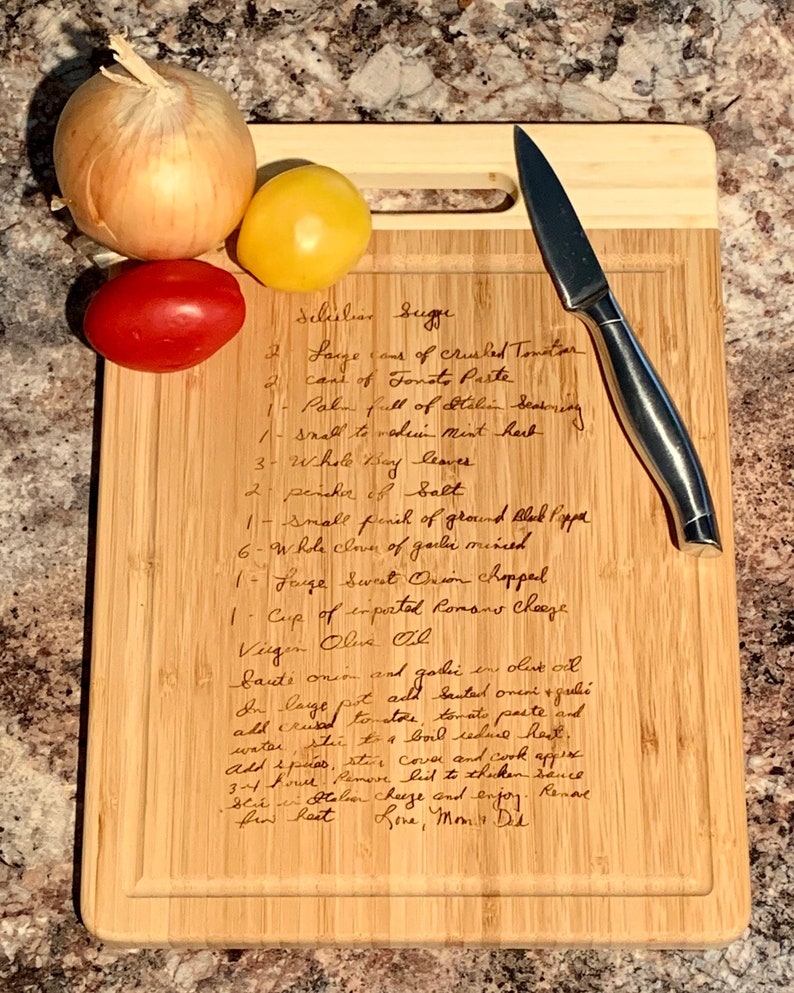 Silician Suggo
2 - Large cans of crushed Tomatoes
2 cans of Tomato Paste
1 - Palm full of Italian Seasoning
1 - small to medium mint herb
3 - Whole Bay leaves
2 - pinches of Salt
1 - small pinch of ground Black Pepper
6 - Whole cloves of garlic minced
1 - Large Sweet Onion chopped
1 - Cup of imported Romano Cheeze
Virgin Olive Oil
Sauté onion and garlic in olive oil
In large pot add sauted onion & garlic
add crused tomatoes, tomato paste and
water, stir to a boil reduce heat.
Add spices, stir cover and cook approx
3-4 hours. Remove lid to thicken sauce
Stir in Italian cheeze and enjoy. Remove
from heat Love, Mom & Dad